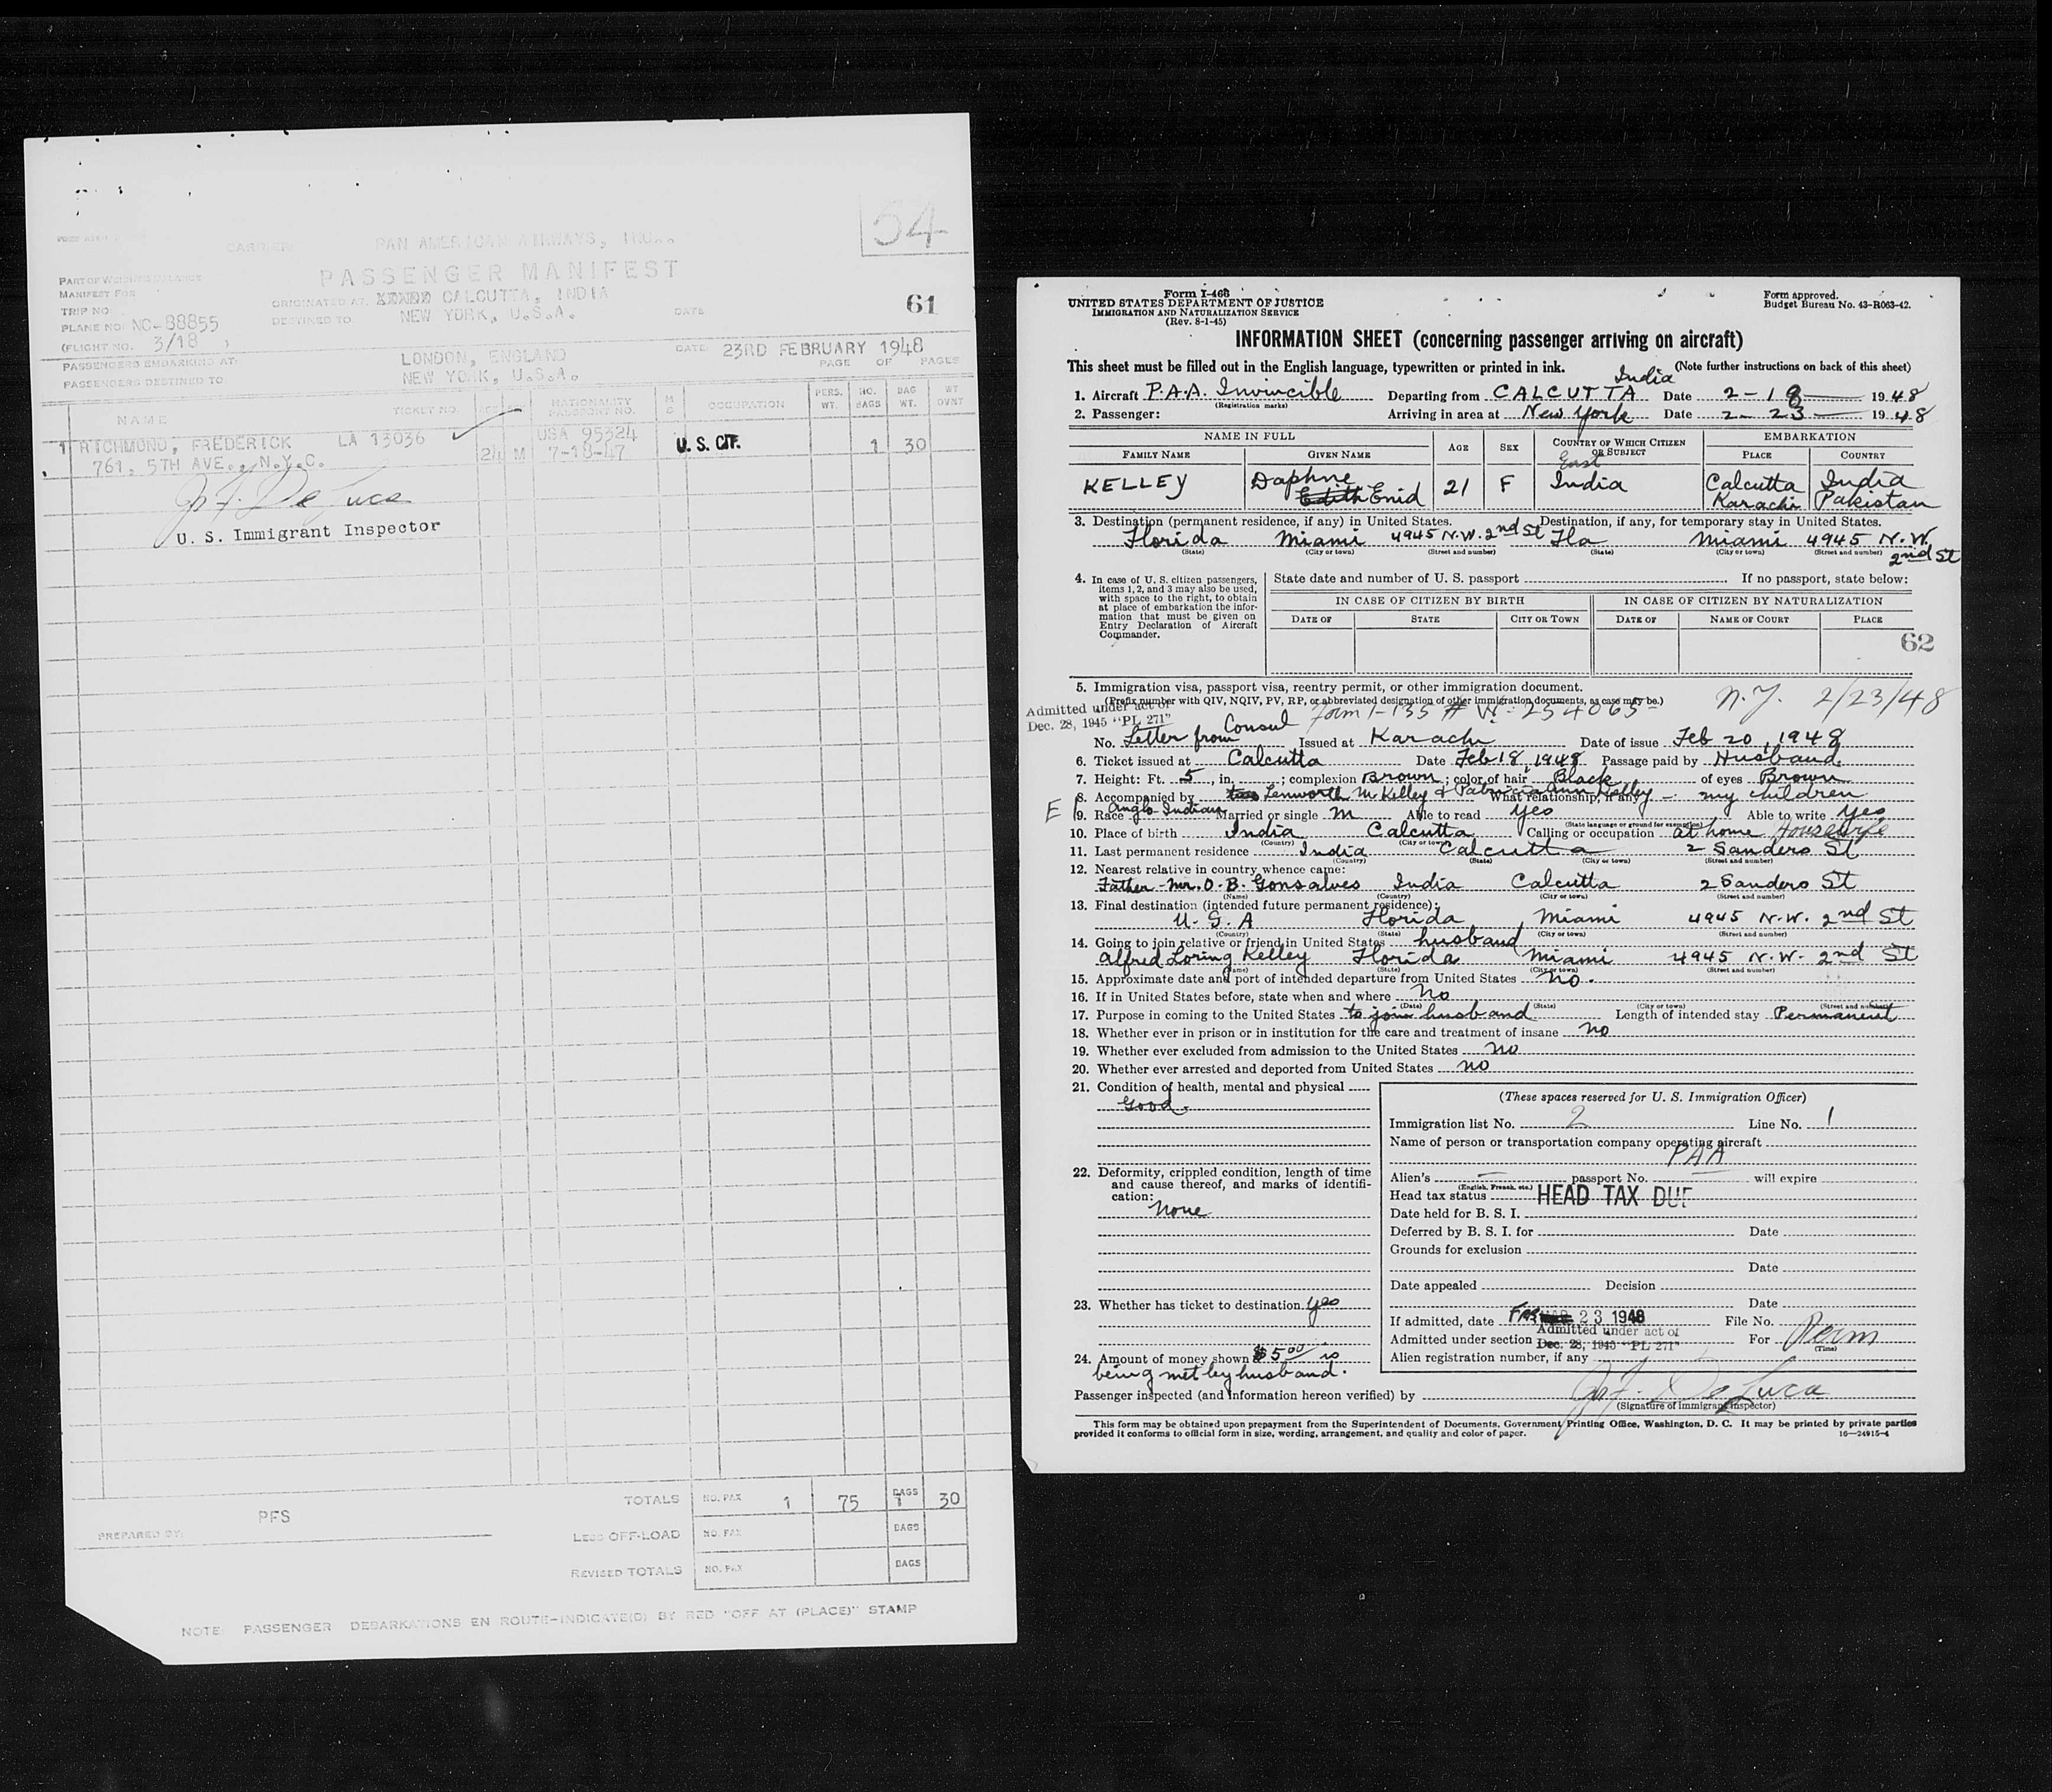 54
CARRIER PAN AMERICAN AIRWAYS, INC.
PASSENGER MANIFEST
PART OF WEIGHT & BALANCE
MANIFEST FOR
ORIGINATED AT CALCUTTA, INDIA
61
TRIP NO.
DESTINED TO NEW YORK, U.S.A. DATE
PLANE NO. NC-88855
(FLIGHT NO. 3/18 )
PASSENGERS EMBARKING AT: LONDON, ENGLAND DATE 23RD FEBRUARY 1948
PASSENGERS DESTINED TO NEW YORK, U.S.A. PAGE OF PAGES
NAME TICKET NO. AGE SEX NATIONALITY PASSPORT NO. OCCUPATION PERS. WT. NO. BAGS BAG WT. WT
1 RICHMOND, FREDERICK LA 13036 USA 95324
24 M 7-18-47 U. S. CIT. 1 30
761, 5TH AVE., N.Y.C.
Jos F. De Luca
U. S. Immigrant Inspector
TOTALS NO. PAX 1 75 BAGS 1 30
PFS
PREPARED BY:
LESS OFF-LOAD NO. PAX BAGS
REVISED TOTALS NO. PAX BAGS
NOTE: PASSENGER DEBARKATIONS EN ROUTE-INDICATE(D) BY RED "OFF AT (PLACE)" STAMP
Form I-466
UNITED STATES DEPARTMENT OF JUSTICE
IMMIGRATION AND NATURALIZATION SERVICE
(Rev. 8-1-45)
Form approved.
Budget Bureau No. 43-R063-42.
INFORMATION SHEET (concerning passenger arriving on aircraft)
This sheet must be filled out in the English language, typewritten or printed in ink. (Note further instructions on back of this sheet)
India
1. Aircraft P.A.A. Invincible Departing from CALCUTTA Date 2-18 1948
(Registration marks)
2. Passenger: Arriving in area at New York Date 2-23 1948
NAME IN FULL AGE SEX COUNTRY OF WHICH CITIZEN OR SUBJECT EMBARKATION
FAMILY NAME GIVEN NAME PLACE COUNTRY
KELLEY Daphne Edith Enid 21 F East India Calcutta India
Karachi Pakistan
3. Destination (permanent residence, if any) in United States. Destination, if any, for temporary stay in United States.
Florida Miami 4945 N.W. 2nd St Fla Miami 4945 N.W. 2nd St
(State) (City or town) (Street and number) (State) (City or town) (Street and number)
4. In case of U. S. citizen passengers, items 1, 2, and 3 may also be used, with space to the right, to obtain at place of embarkation the information that must be given on Entry Declaration of Aircraft Commander.
State date and number of U. S. passport If no passport, state below:
IN CASE OF CITIZEN BY BIRTH IN CASE OF CITIZEN BY NATURALIZATION
DATE OF STATE CITY OR TOWN DATE OF NAME OF COURT PLACE
62
5. Immigration visa, passport visa, reentry permit, or other immigration document.
(Prefix number with QIV, NQIV, PV, RP, or abbreviated designation of other immigration documents, as case may be.)
N.Y. 2/23/48
Admitted under act of
Dec. 28, 1945 "PL 271"
Form I-135 # W-254065
No. Letter from Consul Issued at Karachi Date of issue Feb 20, 1948
6. Ticket issued at Calcutta Date Feb 18, 1948 Passage paid by Husband
7. Height: Ft. 5, in. ; complexion Brown ; color of hair Black of eyes Brown
8. Accompanied by Lenworth M Kelley & Patricia Ann Kelley What relationship, if any - my children
E
9. Race Anglo-Indian Married or single M Able to read yes Able to write yes
(State language or ground for exemption)
10. Place of birth India Calcutta Calling or occupation at home Housewife
(Country) (City or town)
11. Last permanent residence India Calcutta 2 Sanders St
(Country) (State) (City or town) (Street and number)
12. Nearest relative in country whence came:
Father - Mr. O. B. Gonsalves India Calcutta 2 Sanders St
(Name) (Country) (City or town) (Street and number)
13. Final destination (intended future permanent residence):
U.S.A Florida Miami 4945 N.W. 2nd St
(Country) (State) (City or town) (Street and number)
14. Going to join relative or friend in United States husband
Alfred Loring Kelley Florida Miami 4945 N.W. 2nd St
(Name) (State) (City or town) (Street and number)
15. Approximate date and port of intended departure from United States no.
16. If in United States before, state when and where No
(Date) (State) (City or town) (Street and number)
17. Purpose in coming to the United States to join husband Length of intended stay Permanent
18. Whether ever in prison or in institution for the care and treatment of insane no
19. Whether ever excluded from admission to the United States no
20. Whether ever arrested and deported from United States no
21. Condition of health, mental and physical
Good.
22. Deformity, crippled condition, length of time and cause thereof, and marks of identification:
None
23. Whether has ticket to destination yes
24. Amount of money shown $5.00 is
being met by husband.
(These spaces reserved for U. S. Immigration Officer)
Immigration list No. 2 Line No. 1
Name of person or transportation company operating aircraft
PAA
Alien's passport No. will expire
(English, French, etc.)
Head tax status HEAD TAX DUE
Date held for B. S. I.
Deferred by B. S. I. for Date
Grounds for exclusion
Date
Date appealed Decision
Date
If admitted, date 23 1948 File No.
Admitted under section Admitted under act of Dec. 28, 1945 "PL 271" For Perm
(Time)
Alien registration number, if any
Passenger inspected (and information hereon verified) by Jos F. De Luca
(Signature of immigrant inspector)
This form may be obtained upon prepayment from the Superintendent of Documents, Government Printing Office, Washington, D. C. It may be printed by private parties
provided it conforms to official form in size, wording, arrangement, and quality and color of paper. 16—24915-4